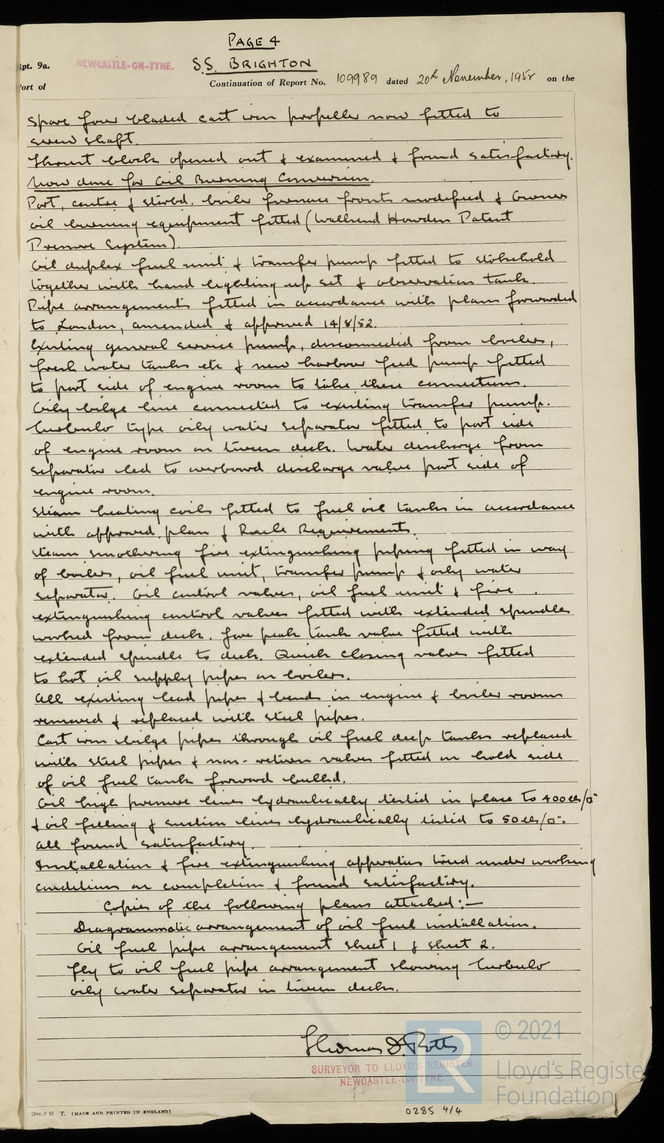 PAGE 4
Rpt. 9a. NEWCASTLE-ON-TYNE. S.S. BRIGHTON
Port of Continuation of Report No. 109989 dated 20th November, 1952 on the
Spare four bladed cast iron propeller now fitted to
screw shaft.
Thrust block opened out & examined & found satisfactory.
Now done for Oil Burning Conversion.
Port, centre & starbd. boiler furnace fronts modified &
oil burning equipment fitted (Wallsend Howden Patent
Pressure System).
Oil duplex fuel unit & transfer pump fitted to stokehold
together with hand lighting up set & observation tank.
Pipe arrangements fitted in accordance with plans forwarded
to London, amended & approved 14/8/52.
Existing general service pump, disconnected from boilers,
fresh water tanks etc & new harbour feed pump fitted
to port side of engine room to take these connections.
Oily bilge line connected to existing transfer pump.
Turbulo type oily water separator fitted to port side
of engine room on tween deck. Water discharge from
separator led to overboard discharge valve port side of
engine room.
Steam heating coils fitted to fuel oil tanks in accordance
with approved plan & Rule Requirements.
Steam smothering fire extinguishing piping fitted in way
of boilers, oil fuel unit, transfer pump & oily water
separator. Oil control valves, oil fuel unit & fire
extinguishing control valves fitted with extended spindles
worked from deck. Fore peak tank valve fitted with
extended spindle to deck. Quick closing valves fitted
to hot oil supply pipes on boilers.
All existing lead pipes & bends in engine & boiler rooms
removed & replaced with steel pipes.
Cast iron bilge pipes through oil fuel deep tanks replaced
with steel pipes & non-return valves fitted on hold side
of oil fuel tank forward bulkd.
Oil high pressure lines hydraulically tested in place to 400 lbs/□"
& oil filling & suction lines hydraulically tested to 50 lbs/□".
All found satisfactory.
Installation & fire extinguishing apparatus tried under working
conditions on completion & found satisfactory.
Copies of the following plans attached:-
Diagrammatic arrangement of oil fuel installation.
Oil fuel pipe arrangement sheet 1 & sheet 2.
Fly to oil fuel pipe arrangement showing Turbulo
oily water separator in tween decks.
Thomas D. Potts
SURVEYOR TO LLOYD'S REGISTER
NEWCASTLE-ON-TYNE
T. (MADE AND PRINTED IN ENGLAND)
0285 4/4
LR
© 2021
Lloyd's Register
Foundation